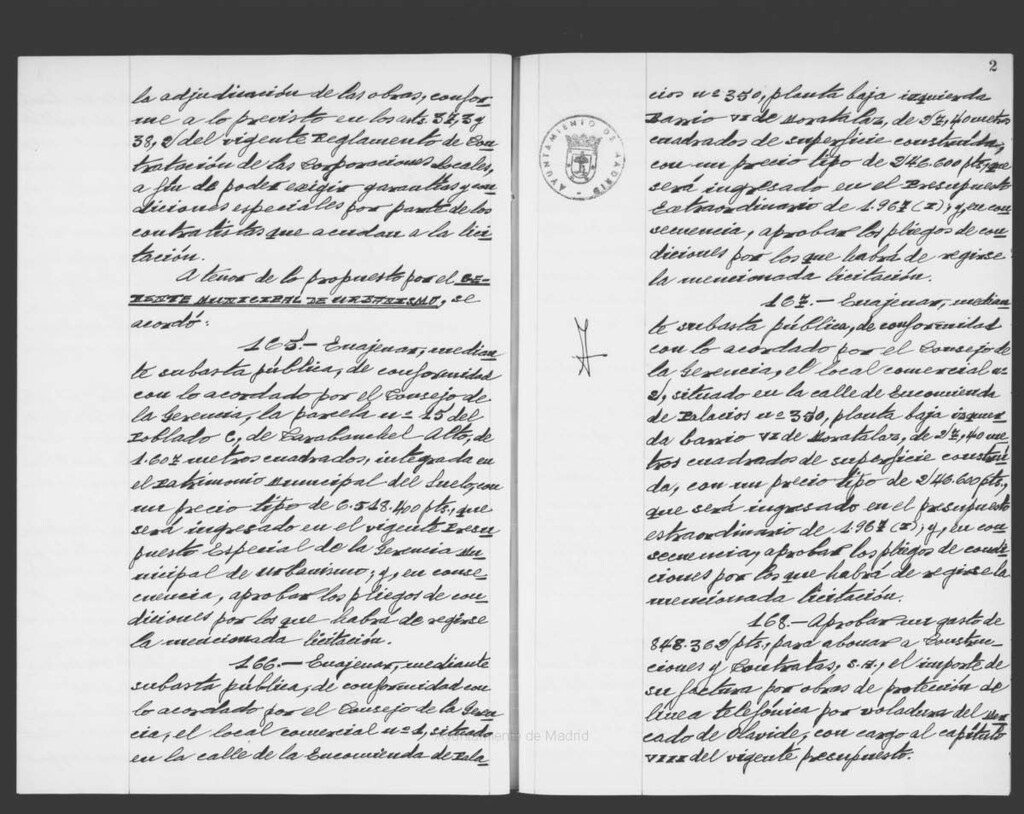 la adjudicación de las obras, confor
me a lo previsto en los arts. 37,3 y
38,2 del vigente Reglamento de Con
tratación de las Corporaciones Locales,
a fin de poder exigir garantías y con
diciones especiales por parte de los
contratistas que acudan a la lici
tación.
A tenor de lo propuesto por el GE-
RENTE MUNICIPAL DE URBANISMO, se
acordó:
165.- Enajenar, median
te subasta pública, de conformidad
con lo acordado por el Consejo de
la Gerencia, la parcela nº 15 del
Poblado C, de Carabanchel Alto, de
1.607 metros cuadrados, integrada en
el Patrimonio Municipal del Suelo, con
un precio tipo de 6.518.400 pts., que
será ingresado en el vigente Presu
puesto Especial de la Gerencia Mu
nicipal de Urbanismo; y, en conse-
cuencia, aprobar los pliegos de con
diciones por los que habrá de regirse
la mencionada licitación.
166.- Enajenar, mediante
subasta pública, de conformidad con
lo acordado por el Consejo de la Geren
cia, el local comercial nº 1, situado
en la calle de la Encomienda de Pala-
2
cios nº 350, planta baja izquierda
Barrio VI de Moratalaz, de 27,40 metros
cuadrados de superficie construida,
con un precio tipo de 246.600 pts, que
será ingresado en el Presupuesto
Extraordinario de 1.967 (I); y, en con
secuencia, aprobar los pliegos de con
diciones por los que habrá de regirse
la mencionada licitación.
167.- Enajenar, median
te subasta pública, de conformidad
con lo acordado por el Consejo de
la Gerencia, el local comercial nº
2, situado en la calle de Encomienda
de Palacios nº 350, planta baja izquier
da barrio VI de Moratalaz, de 27,40 me
tros cuadrados de superficie construi
da, con un precio tipo de 246.600 pts.,
que será ingresado en el presupuesto
extraordinario de 1967 (I); y, en con
secuencia, aprobar los pliegos de condi
ciones por los que habrá de regirse la
mencionada licitación.
168.- Aprobar un gasto de
848.362 pts., para abonar a Construc
ciones y Contratas, S.A., el importe de
su factura por obras de protección de
línea telefónica por voladura del Mer
cado de Olavide, con cargo al capítulo
VIII del vigente presupuesto.
AYUNTAMIENTO DE MADRID
Ayuntamiento de Madrid